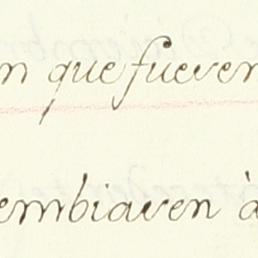 n que fueren
embiaren à